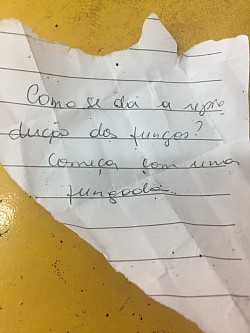 Como se dá a repro
dução dos fungos?
Começa com uma
fungada...